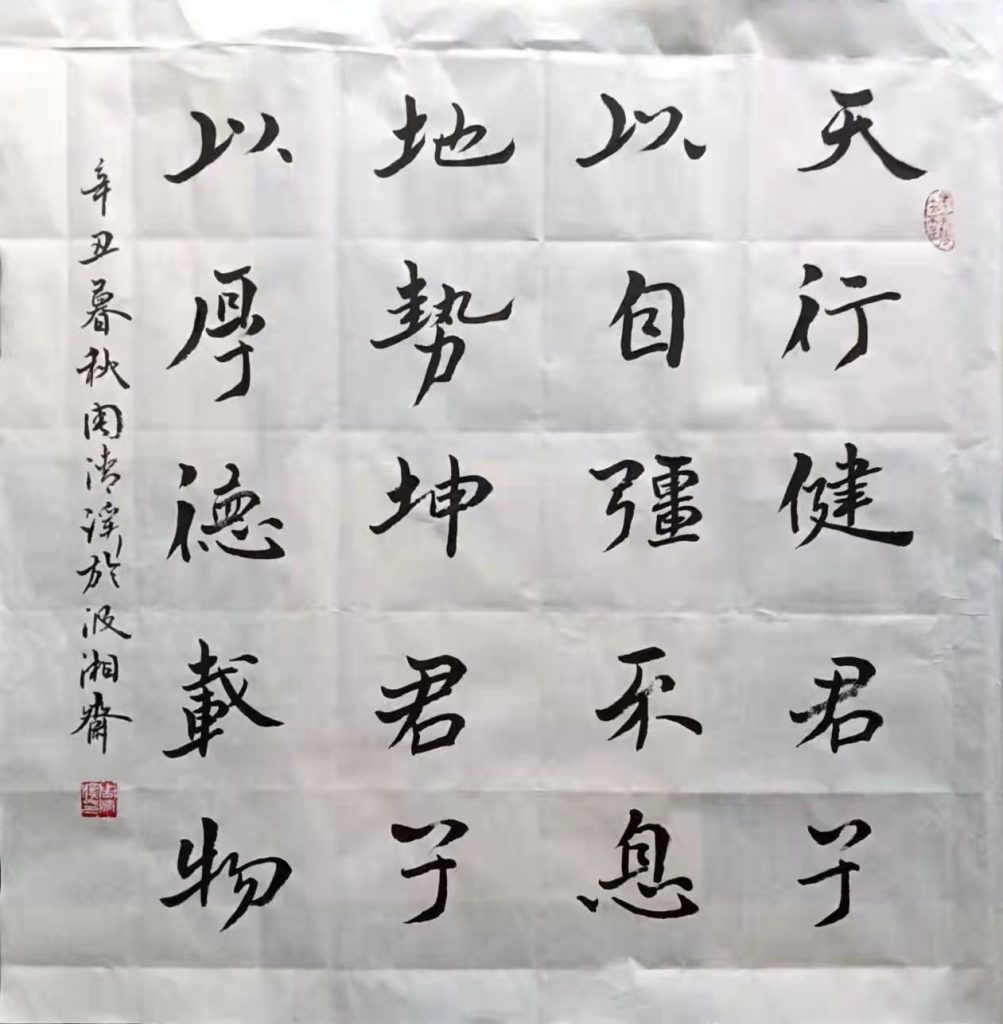 天行健君子
以自彊不息
地勢坤君子
以厚德載物
辛丑暮秋周清渓於汲湘齋